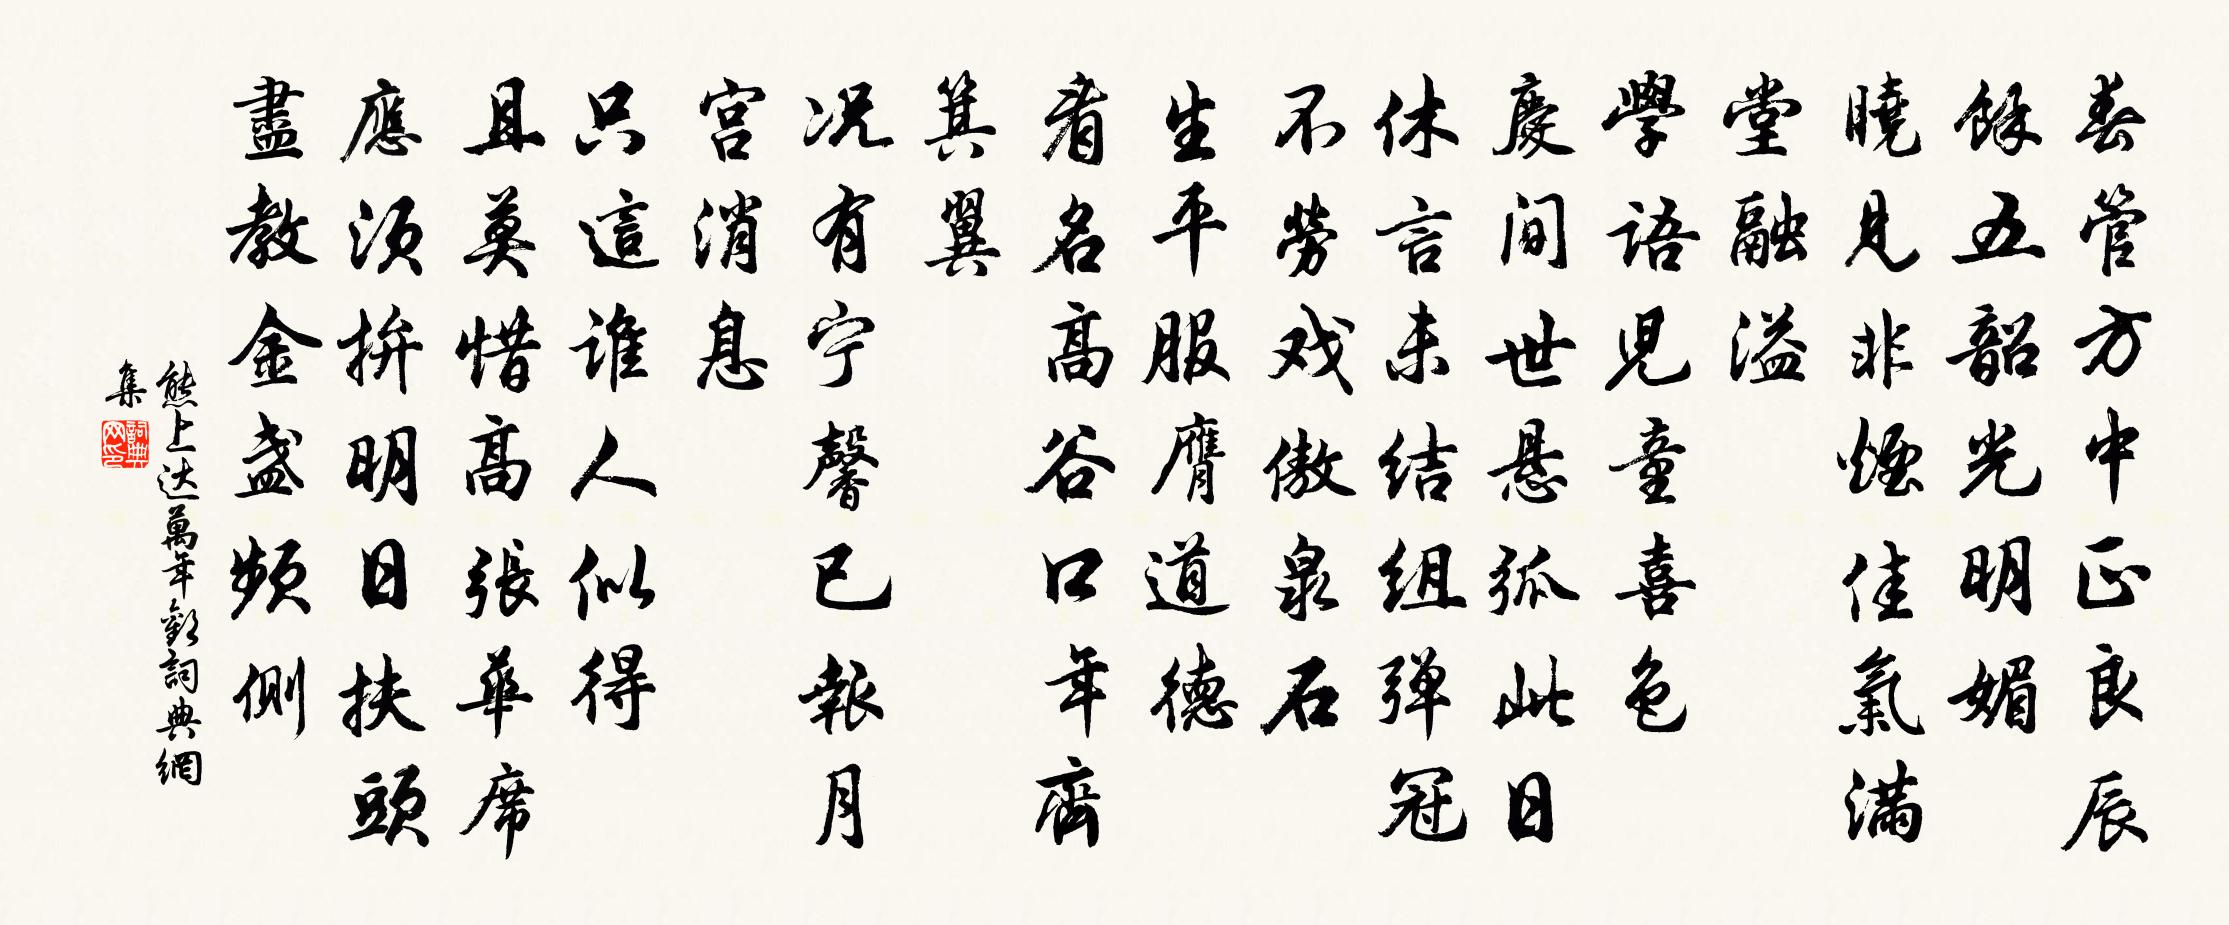 春管方中正良辰
餘五韶光明媚
曉見非煙佳氣滿
堂融溢
學語兒童喜色
慶间世悬弧此日
休言未结组弹冠
不勞戏傲泉石
生平服膺道德
看名高谷口年齊
箕翼
况有宁馨已報月
宫消息
只這誰人似得
且莫惜高張華席
應须拚明日扶頭
盡教金盏频側
熊上达萬年歡詞典網
集
詞典网印